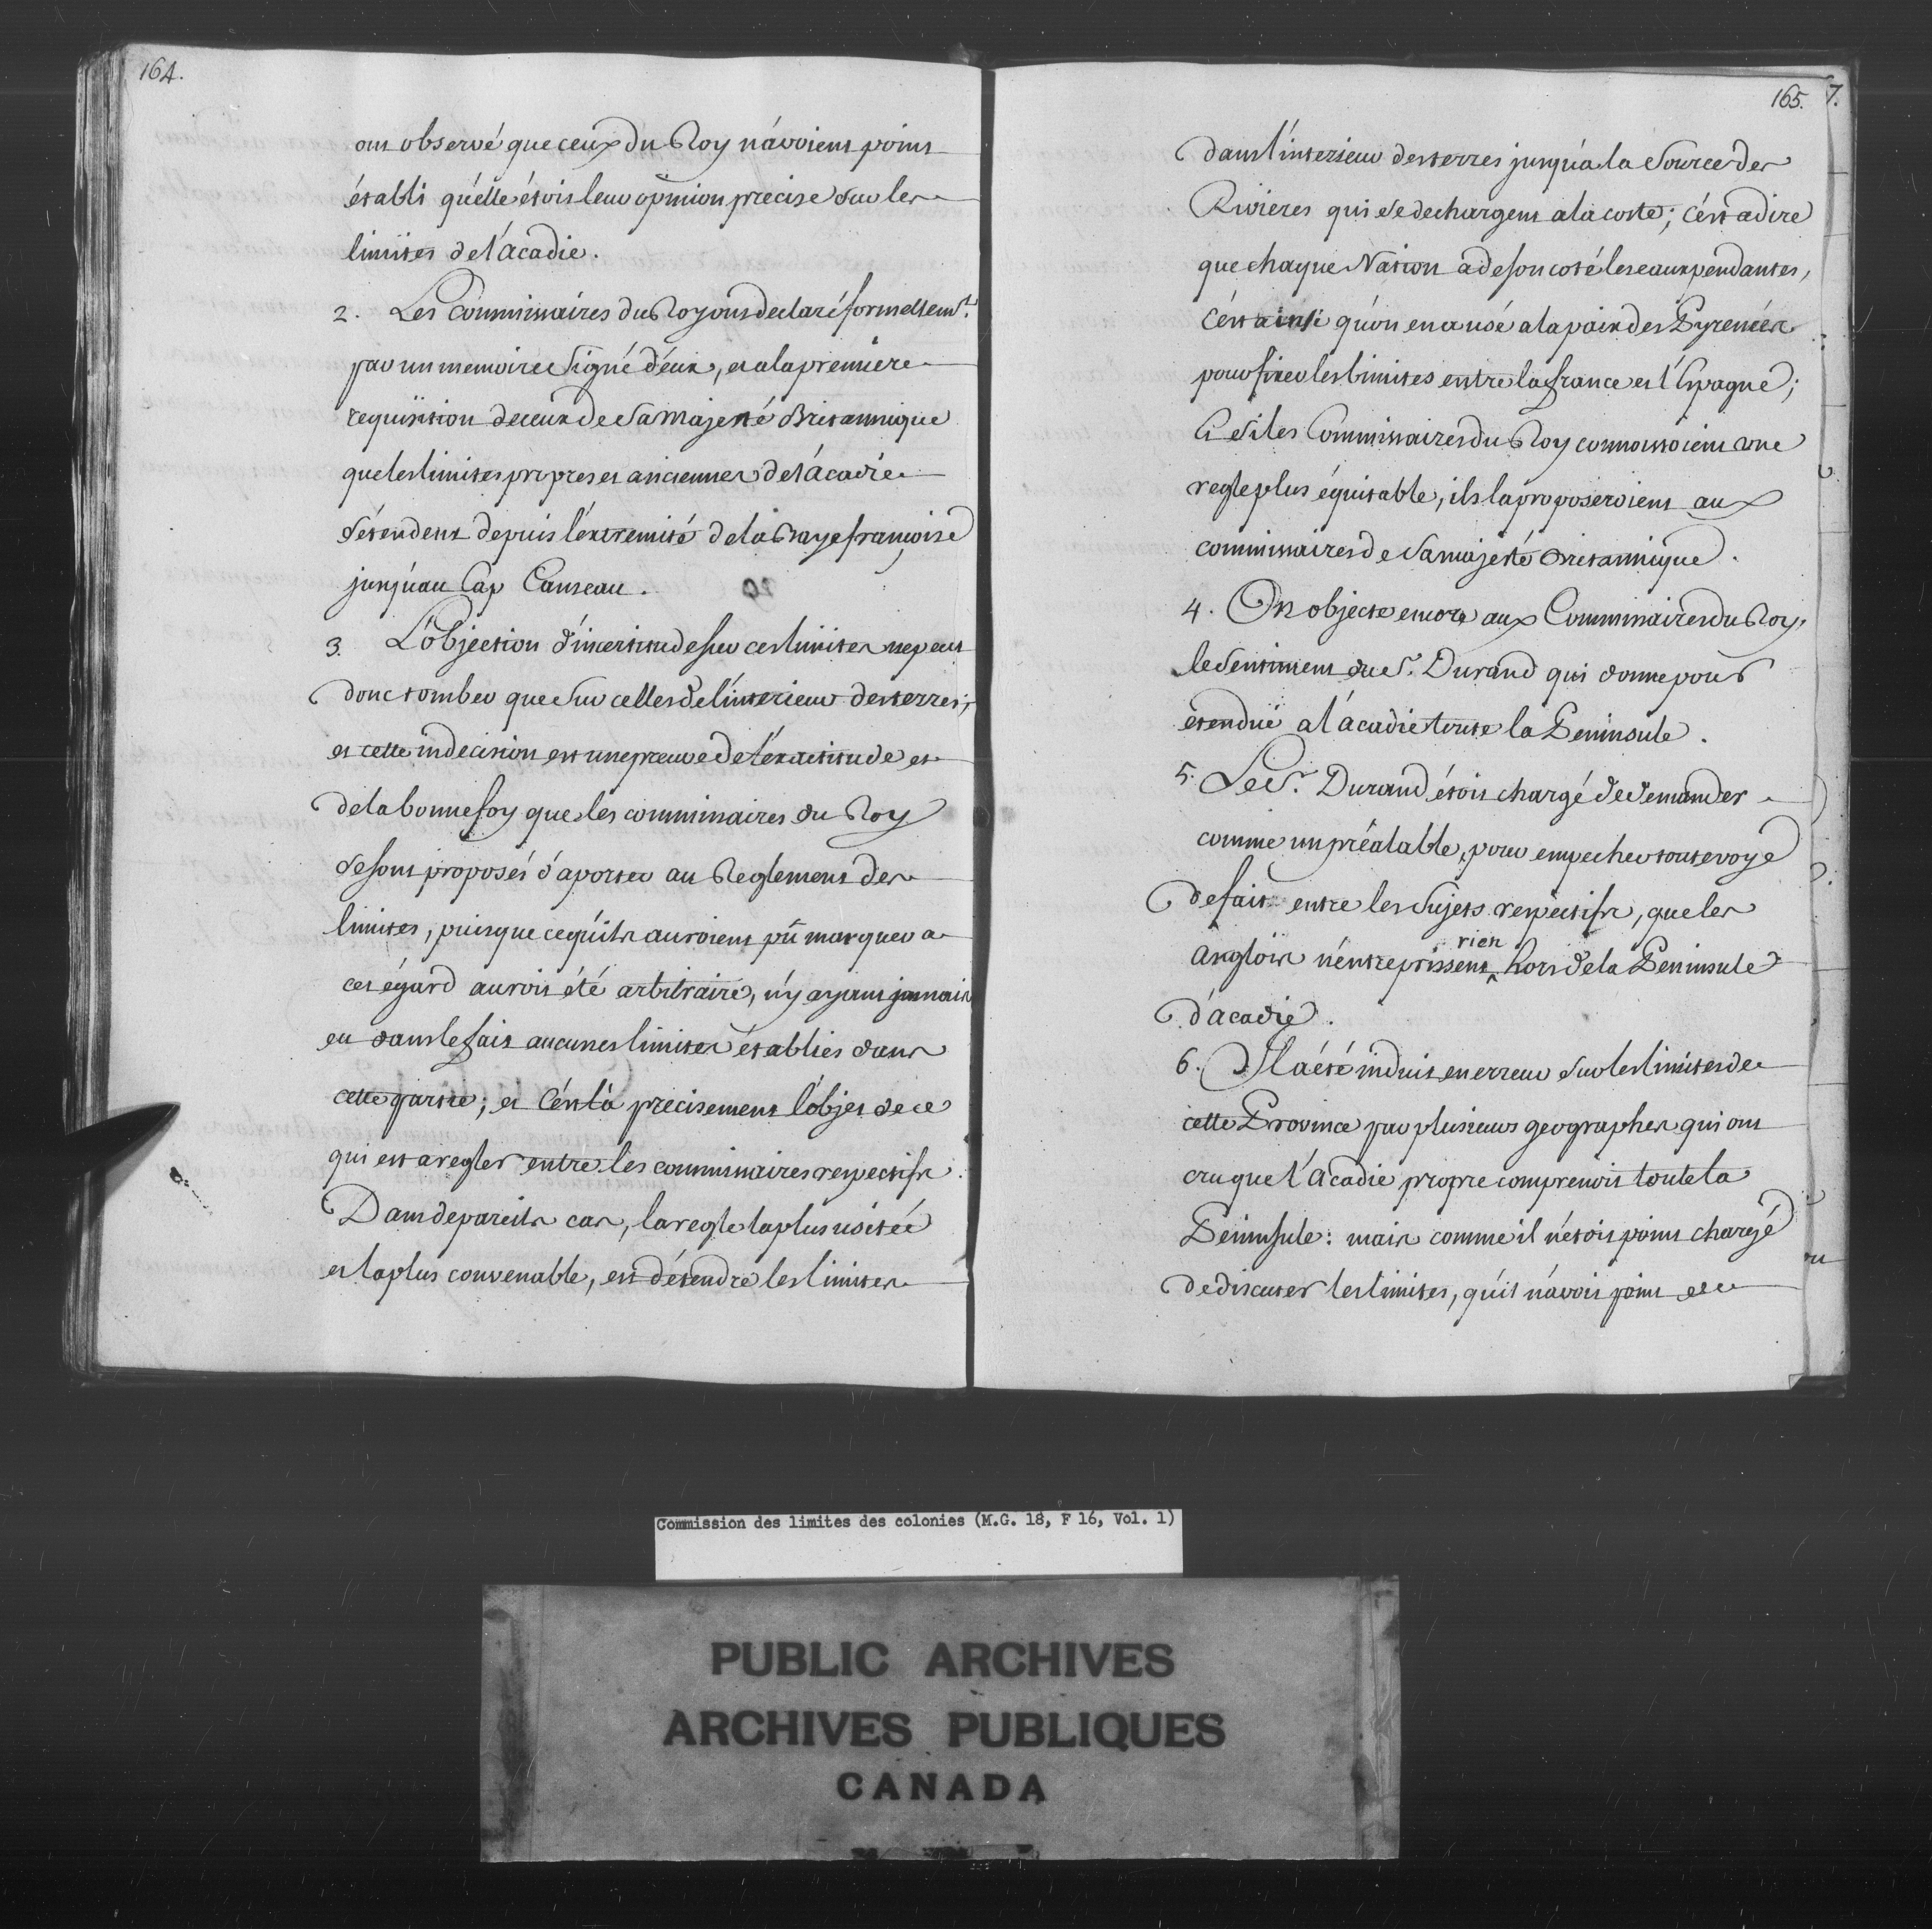 164.
ont observé que ceux du Roy n'avoient point
établi quélle étoit leur opinion precise sur les
limites de l'acadie.
2. Les Commissaires du Roy ont declaré formellem.t
par un memoire signé d'eux, et a la premiere
requisition de ceux de Sa Majesté Britannique
que les limites propres et anciennes de l'acadie
s'étendent depuis l'extremité de la Baye françoise
jusqu'au Cap Canseau.
3. L'objection d'incertitude sur ces limites ne peut
donc tomber que sur celles de l'interieur des terres;
et cette indecision est une preuve de l'exactitude et
de la bonne foy que les commissaires du Roy
se sont proposés d'aporter au Reglement des
limites, puisque ce qu'ils auroient pû marquer a
cet égard auroit été arbitraire, n'y ayant jamais
eu dans le fait aucunes limites établies dans
cette partie; et c'est là precisement l'objet de ce
qui est a regler entre les commissaires respectifs.
Dans de pareils cas, la regle la plus usitée
et la plus convenable, est d'étendre les limites
165. 7.
dans l'interieur des terres jusqu'a la Source des
Rivieres qui se dechargent a la coste; c'est a dire
que chaque Nation a de son coté les eaux pendantes,
c'est ainsi qu'on en a usé a la paix des Pyrenées
pour fixer les limites entre la france et l'Espagne;
Et si les Commissaires du Roy connoissoient une
regle plus équitable, ils la proposeroient aux
commissaires de Sa majesté Britannique.
4. On objecte encore aux Commissaires du Roy,
le Sentiment du S.r Durand qui donne pour
étendüe a l'acadie toute la Peninsule.
5. Le S.r Durand étoit chargé de demander
comme un préalable, pour empecher toute voye
de fait entre les Sujets respectifs, que les
anglois n'entreprissent rien hors de la Peninsule
d'acadie.
6. Il a été induit en erreur sur les limites de
cette Province par plusieurs geographes qui ont
cru que l'Acadie propre comprenoit toute la
Peninsule: mais comme il n'étoit point chargé
de discuter les limites, qu'il n'avoit point de
Commission des limites des colonies (M.G. 18, F 16, Vol. 1)
PUBLIC ARCHIVES
ARCHIVES PUBLIQUES
CANADA